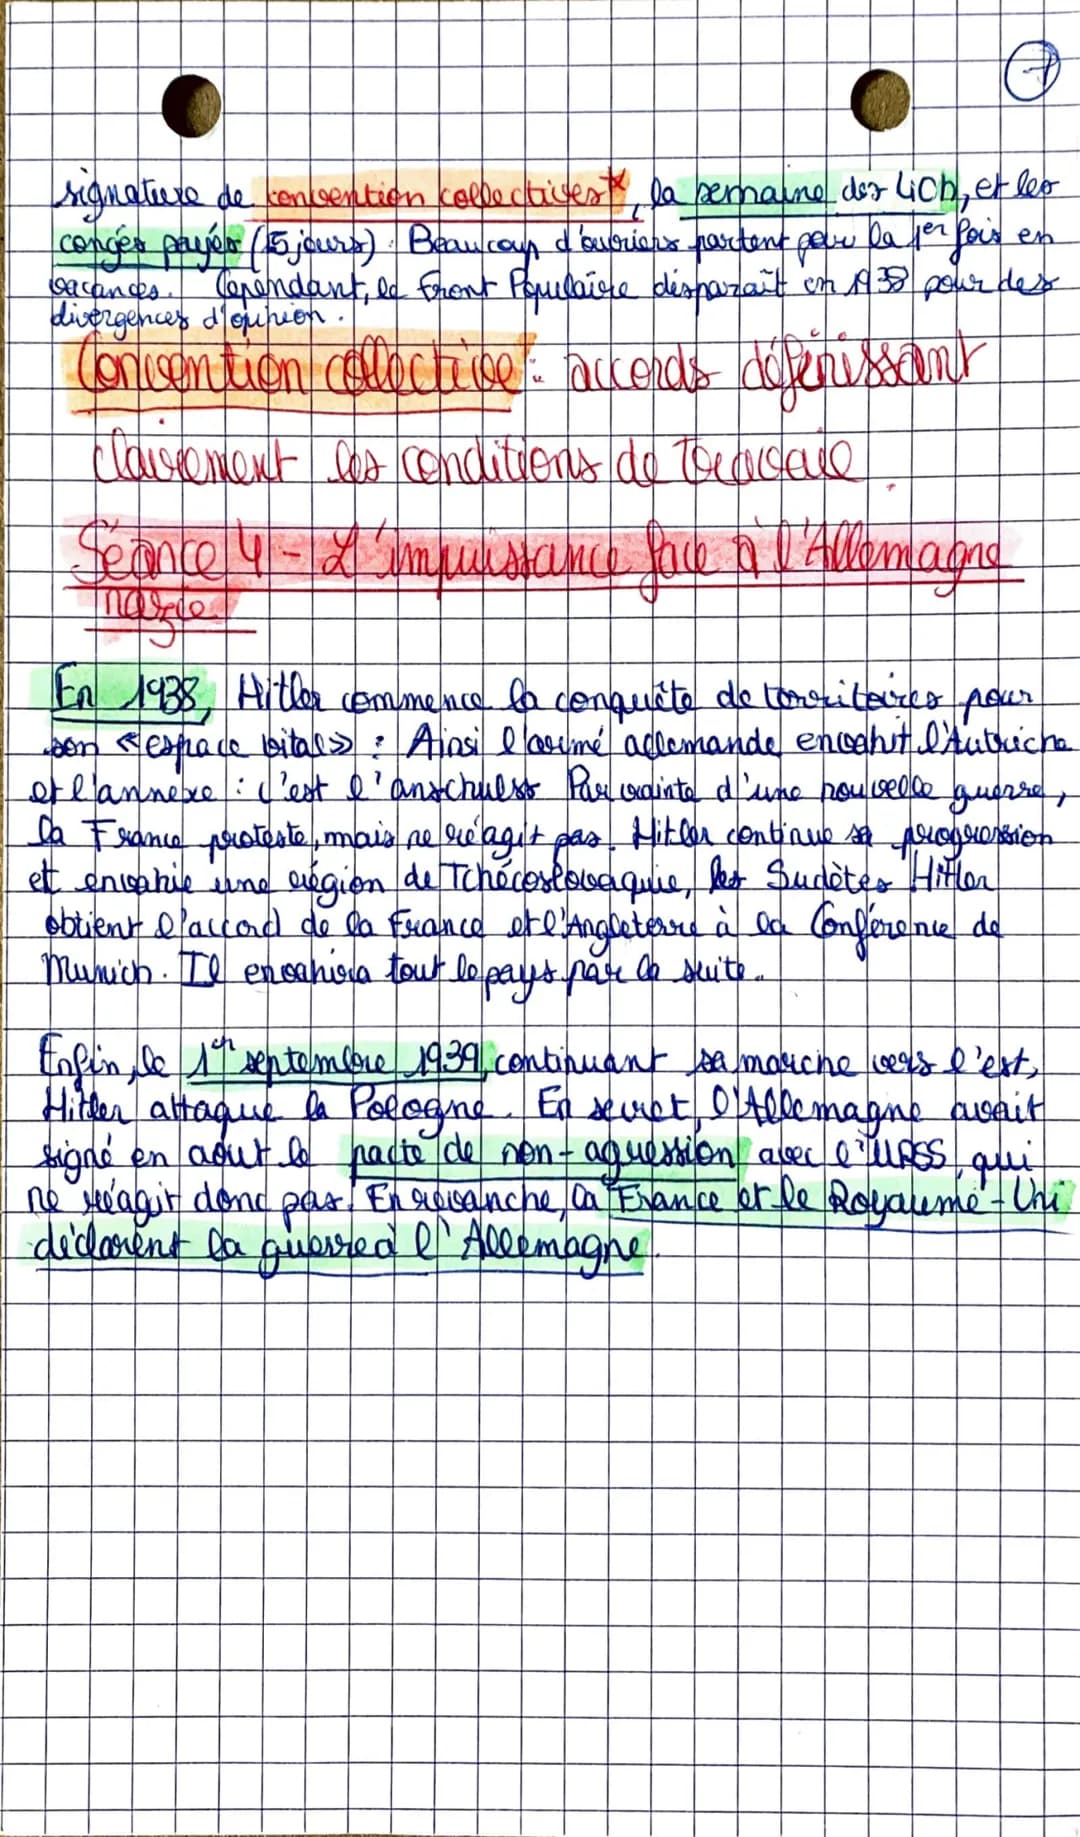 7
signature de convention collectives*, la semaine des 40h, et les
congés payés (15 jours). Beaucoup d'ouvriers partent pour la 1er fois en
vacances. Cependant, le Front Populaire disparaît en 1938 pour des
divergences d'opinion.
Convention collective : accords définissant
clairement les conditions de travail.
Séance 4 - L'impuissance face à l'Allemagne
nazie
En 1938, Hitler commence la conquête de territoires pour
son « espace vital » : Ainsi l'armé allemande envahit l'Autriche
et l'annexe : c'est l'anschulss Par crainte d'une nouvelle guerre,
la France proteste, mais ne réagit pas. Hitler continue sa progression
et envahie une région de Tchécoslovaquie, les Sudètes Hitler
obtient l'accord de la France et l'Angleterre à la Conférence de
Munich. Il envahira tout le pays par la suite.
Enfin, le 1er septembre 1939, continuant sa marche vers l'est,
Hitler attaque la Pologne. En secret, l'Allemagne avait
signé en août le pacte de non-agression avec l'URSS, qui
ne réagit donc pas. En revanche, la France et le Royaume-Uni
déclarent la guerre à l'Allemagne.